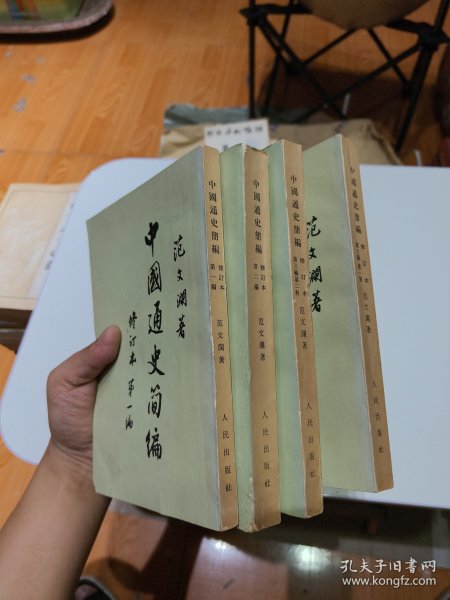 范文瀾著
中國通史简编
修订本 第一編
中國通史簡編 修订本 第一編 范文瀾著 人民出版社
中國通史簡編 修订本 第二編 范文瀾著 人民出版社
中國通史簡編 修订本 第三編第二冊 范文瀾著 人民出版社
范文瀾著
中國通史簡編 修订本 第三編第一冊 范文瀾著 人民出版社
孔夫子旧书网
www.kongfz.com